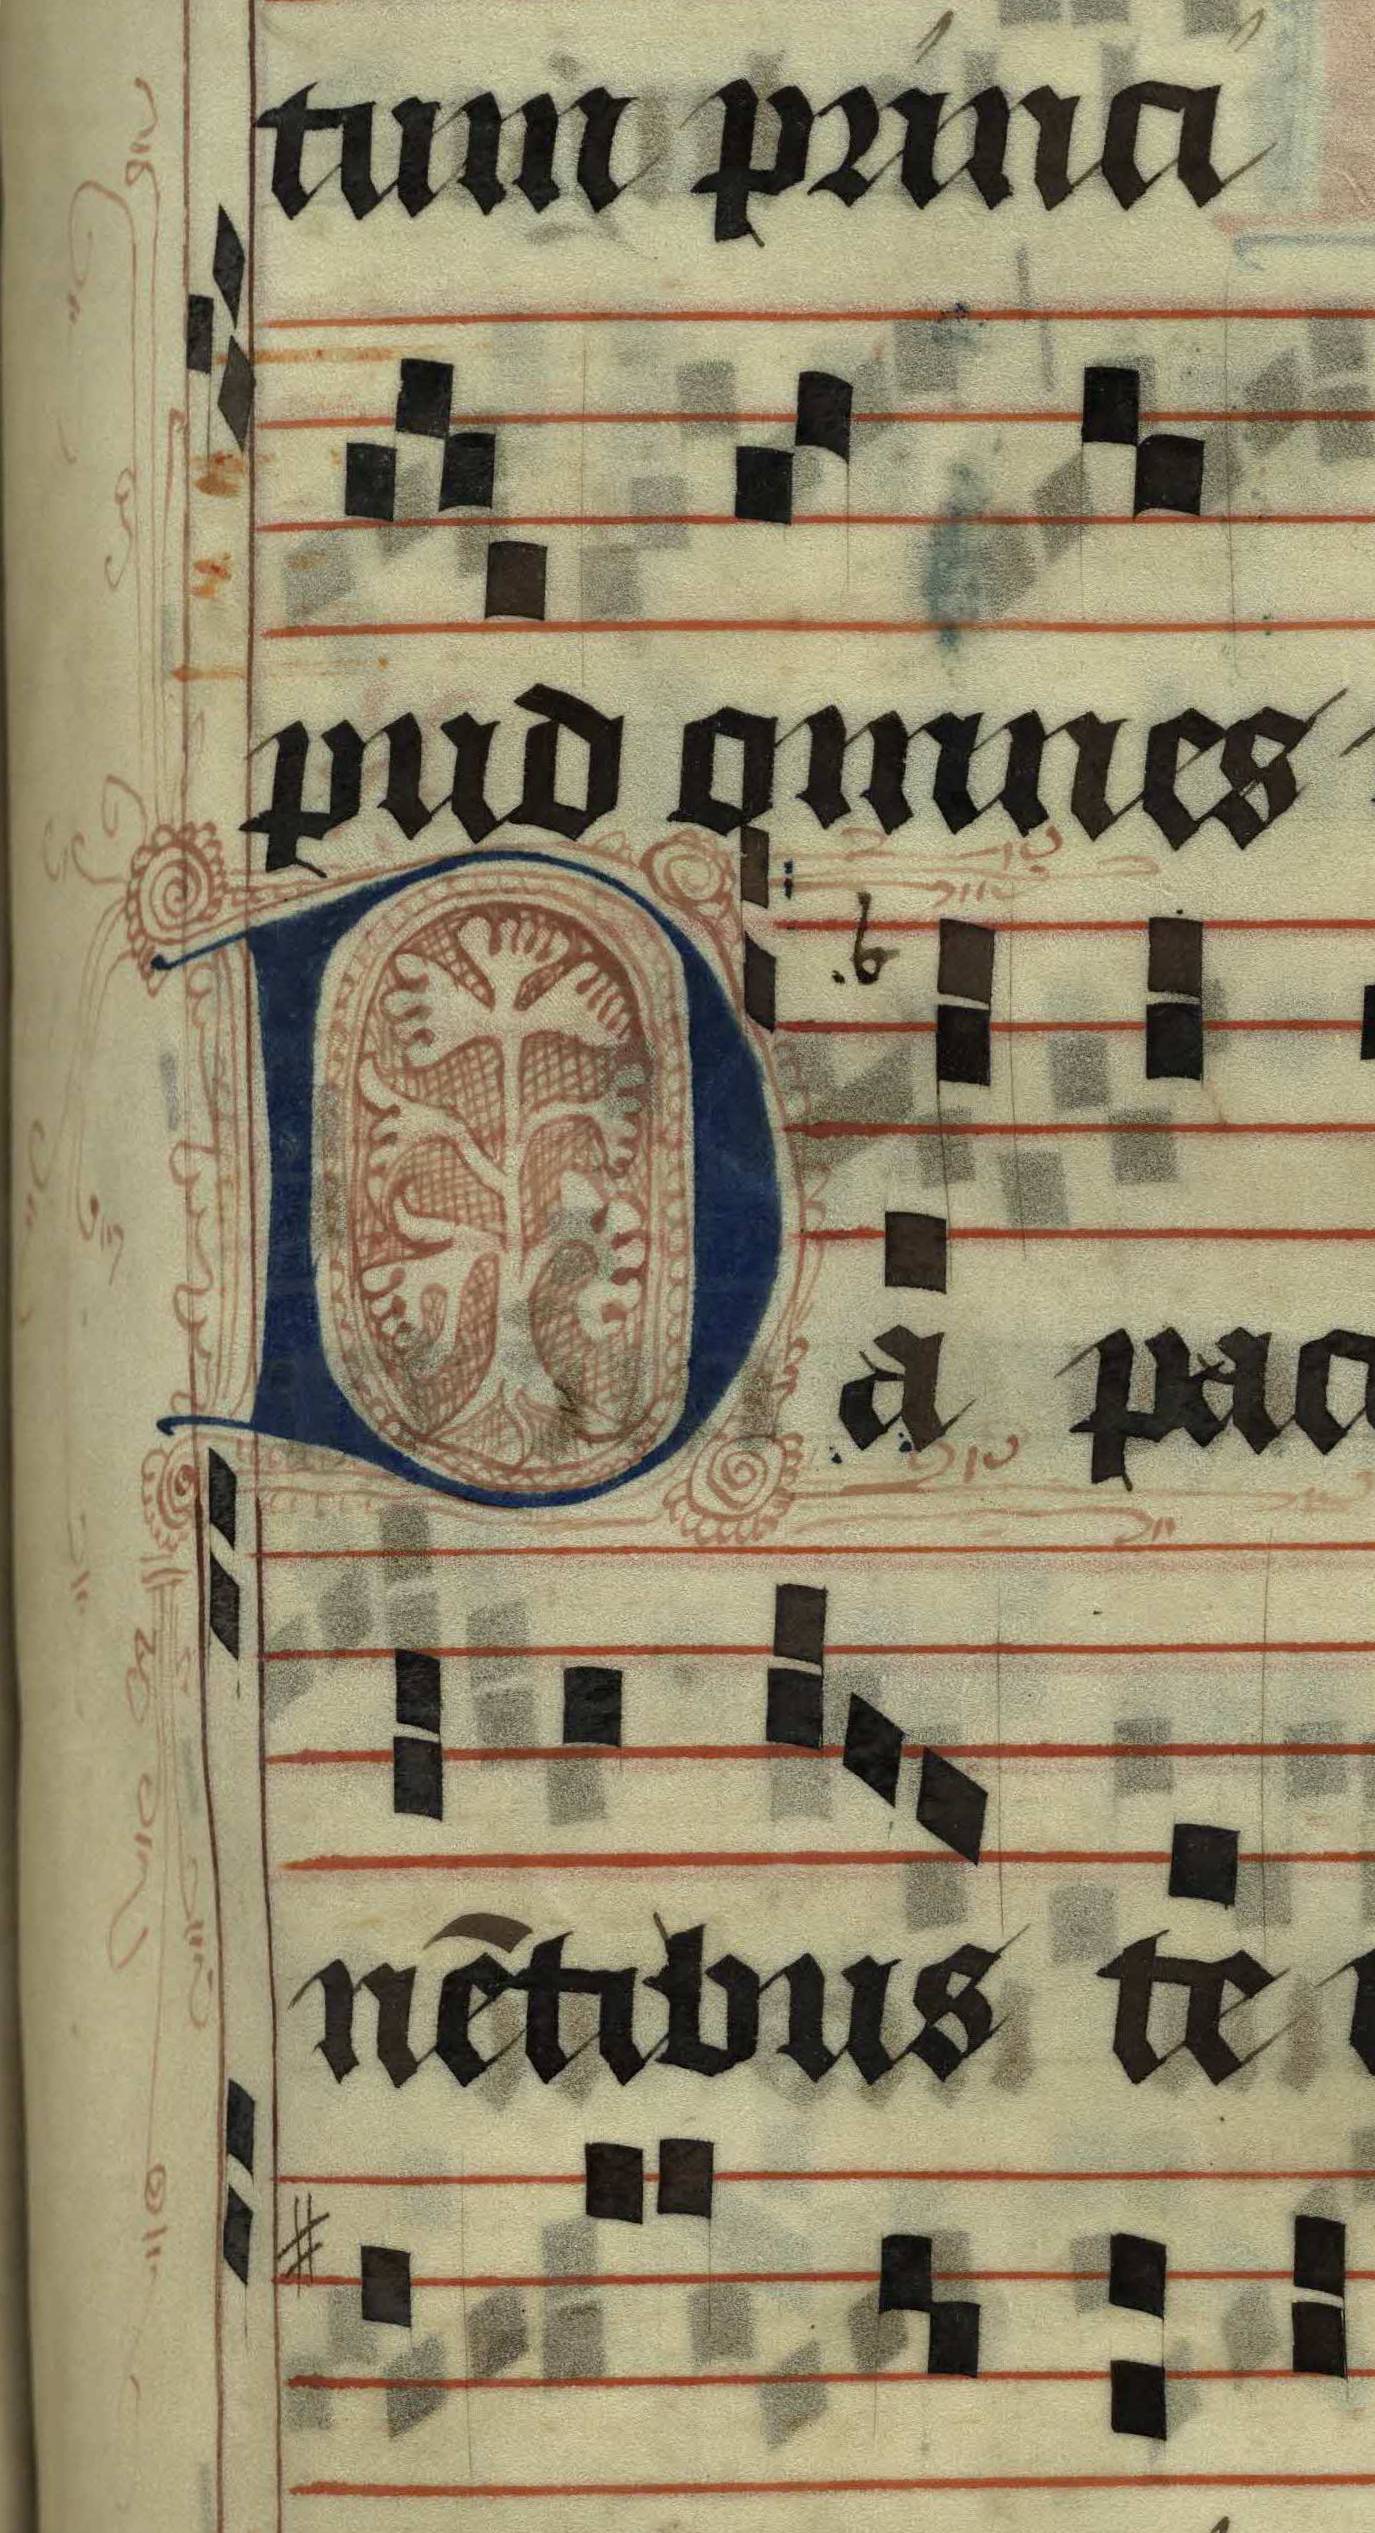 tum princi
pud omnes
Da pac
nētibus te